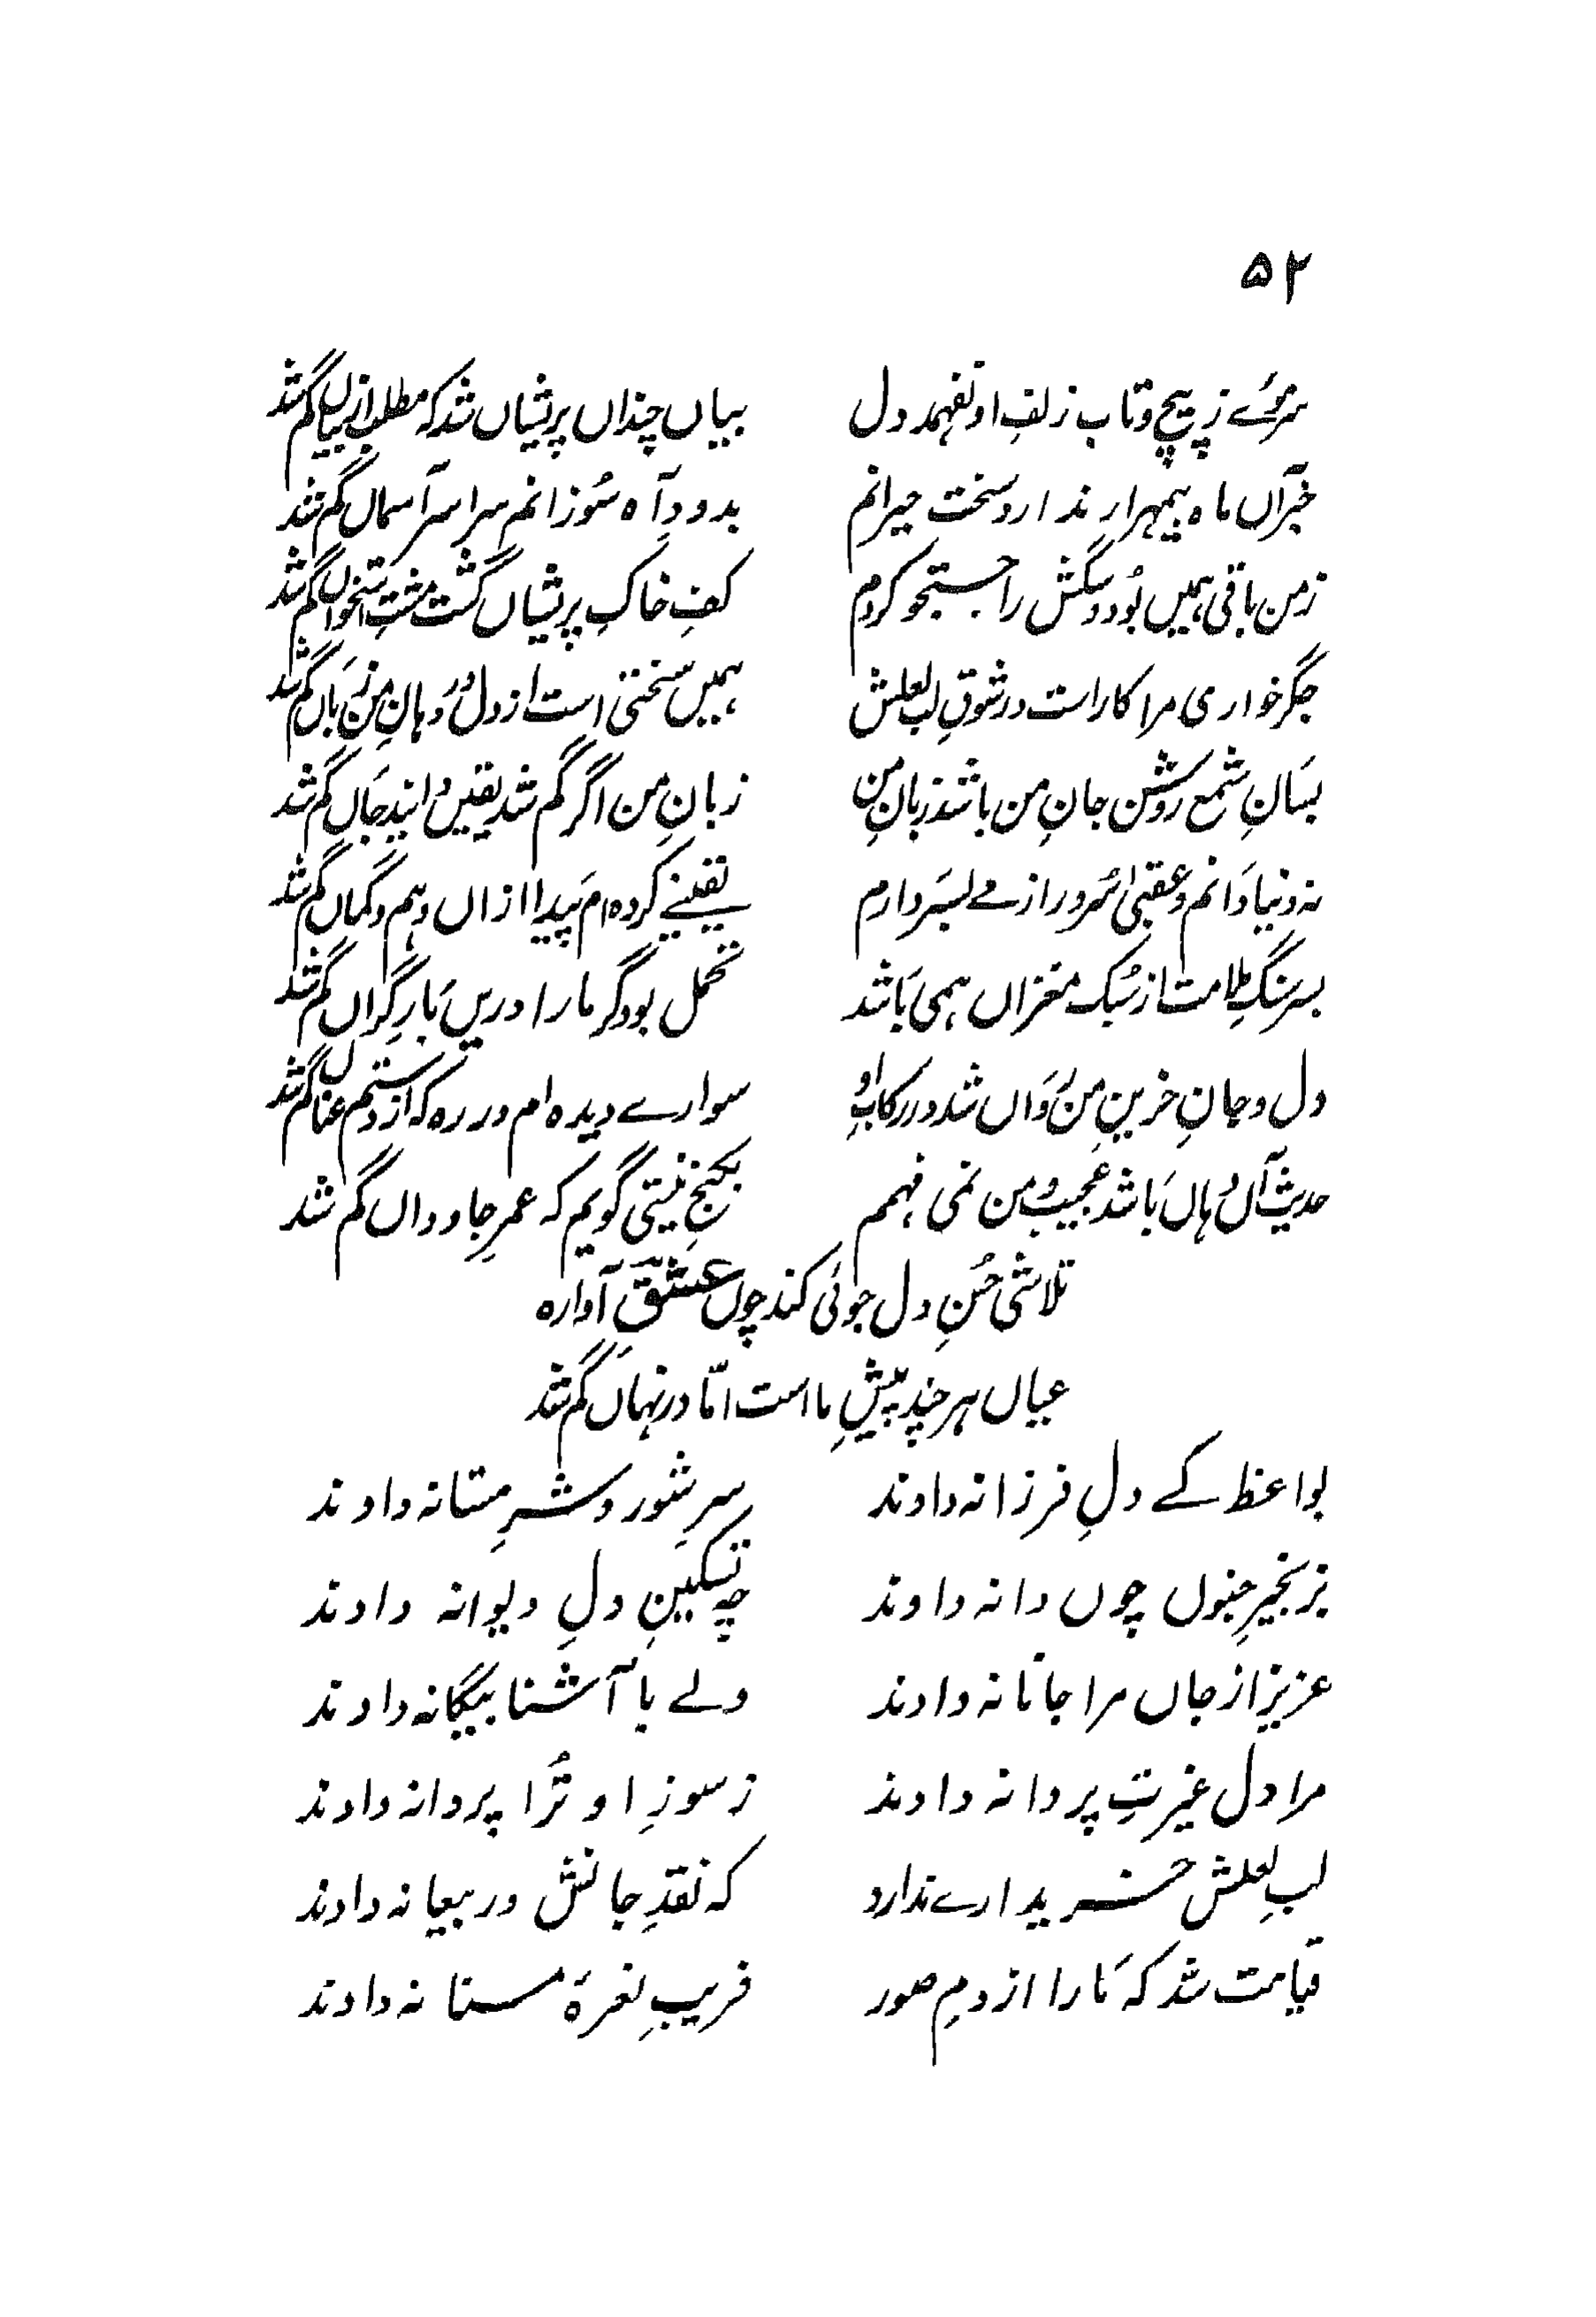 ۵۲
سرِموئے ز پیچ و تاب زلفِ او نفہمد دل
بیاں چنداں پریشاں شد کہ مطلب از بیاں گم شد
خبر آں ماہ بیمہرار ندارد سخت حیرانم
بدودِ آہ سُوزانم سراسر آسماں گم شد
زمن باقی ہمیں بُود و سگش را جستجو کردم
کفِ خاکِ پریشاں گشت مشتِ استخواں گم شد
جگر خواری مرا کار است در شوقِ لبِ لعلش
ہمیں سختی است از دل در دَہانِ من زباں گم شد
بسَانِ شمع روشن جانِ من باشد زبانِ من
زبانِ من اگر گم شد یقیں دانید جَاں گم شد
نہ دنیا دَانم و عقبیٰ سُرور از مے بسَر دارم
یقینے کردہ ام پَیدا ازاں وہم و گماں گم شد
بسر سنگِ ملامت از سُبک مغزاں ہمی بَاشد
تحمل بود گر ما را دریں بَارِ گراں گم شد
دل و جانِ حزینِ من رَوَاں شد در رکابِ او
سوارے دیدہ ام در رہ کہ از دستم عناں گم شد
حدیث آں دہاں بَاشد عجیب و من نمی فہمم
بکنجِ نیستی گویم کہ عمرِ جاوداں گم شد
تلاشی حُسنِ دل جوئی کند چوں عشقِ آوارہ
عیاں ہر چند پیشِ ما است امّا در نہاں گم شد
بواعظ کے دلِ فرزانہ دادند
سرِ شور و شرِ مستانہ دادند
بزنجیرِ جنوں چوں دانہ دادند
چہ تسکینِ دلِ دیوانہ دادند
عزیز از جاں مرا جانانہ دادند
ولے با آشنا بیگانہ دادند
مرا دل غیرتِ پروانہ دادند
ز سوزِ او تُرا پروانہ دادند
لبِ لعلش خریدارے ندارد
کہ نقدِ جانش در بیعانہ دادند
قیامت شد کہ مَا را از دمِ صور
فریبِ نعرۂ مستانہ دادند